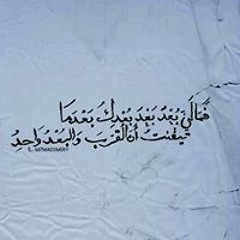 فَمَالِي بُعْدٌ بَعْدَ بُعْدِكَ بَعْدَمَا
تيقنتُ أن القربَ والبُعْدُ واحِدُ